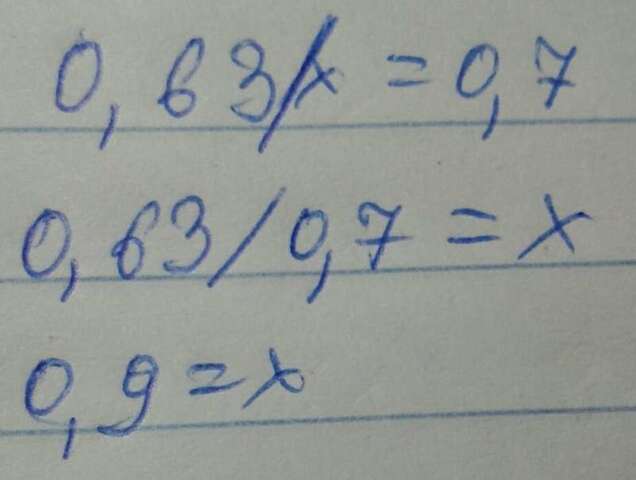 0,63/x = 0,7
0,63/0,7 = x
0,9 = x